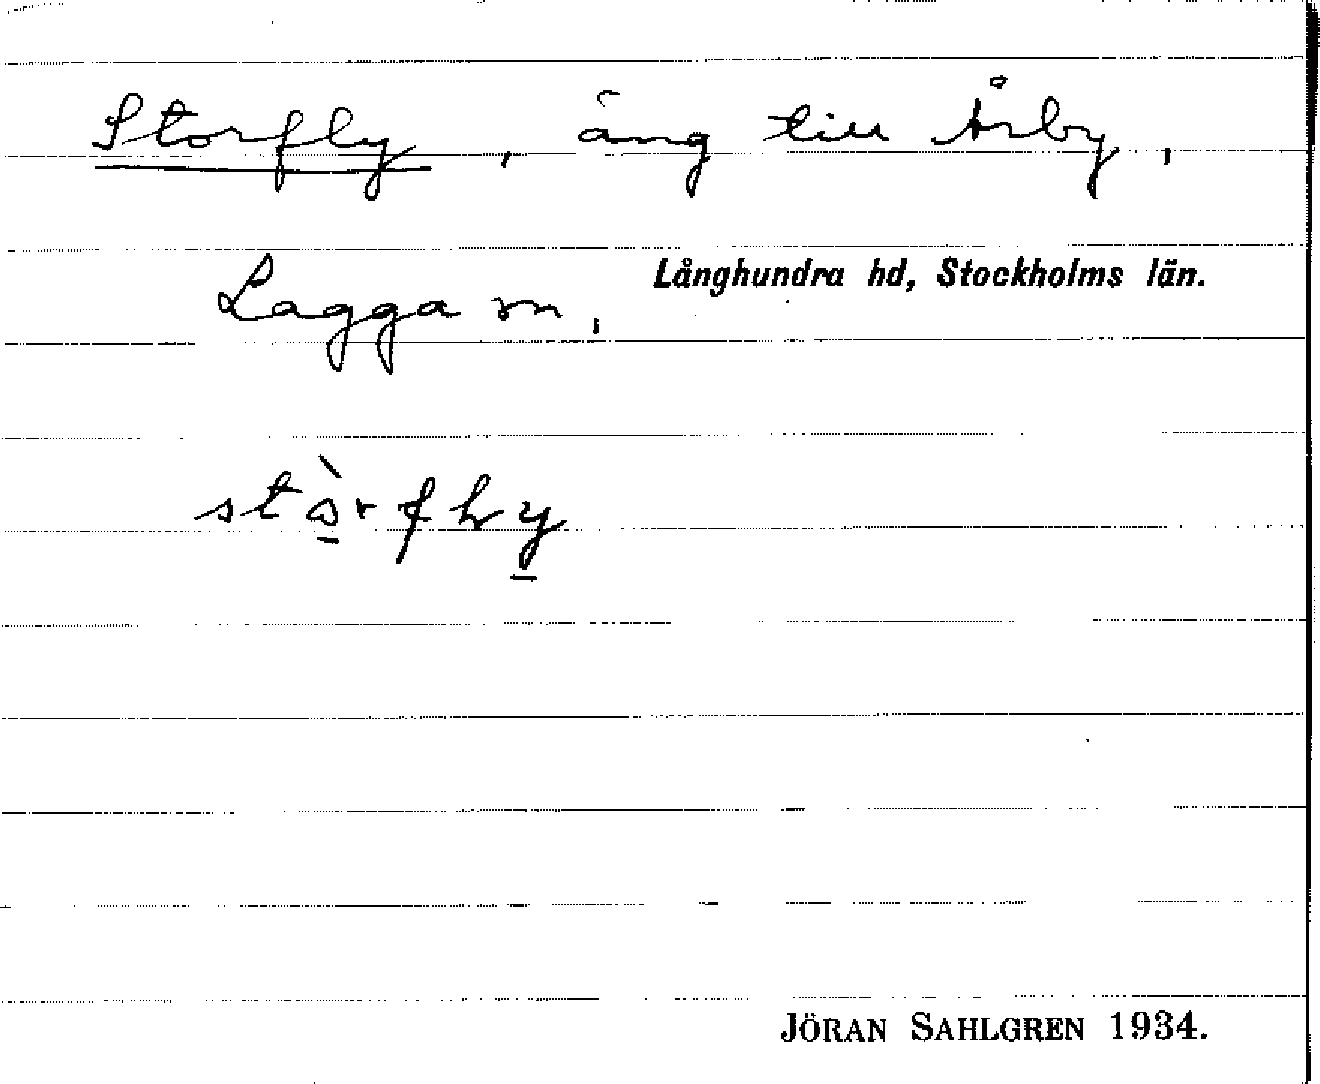 Storfly, äng till Årby,
Långhundra hd, Stockholms län.
Lagga sn,
JÖRAN SAHLGREN 1934.